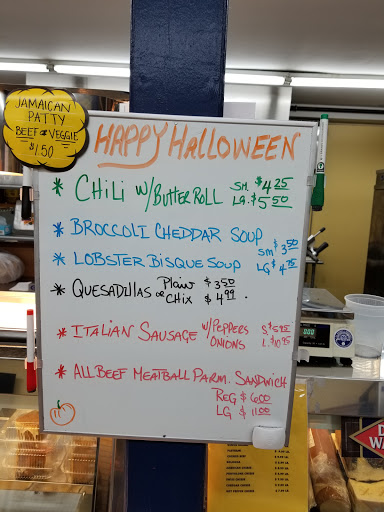 JAMAICAN
PATTY
BEEF or VEGGIE
$1.50
HAPPY HALLOWEEN
* CHILI W/BUTTER ROLL SM. $4.25
LG. $5.50
* BROCCOLI CHEDDAR SOUP
* LOBSTER BISQUE SOUP SM $3.50
LG $4.75
* QUESADILLAS Plain $3.50
or CHIX $4.99.
* ITALIAN SAUSAGE W/PEPPERS
ONIONS
* ALL BEEF MEATBALL PARM. SANDWICH
REG $6.00
LG $11.00